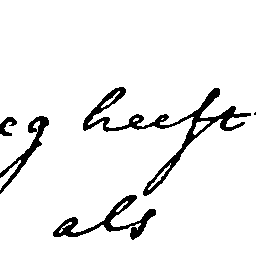 heeft
als